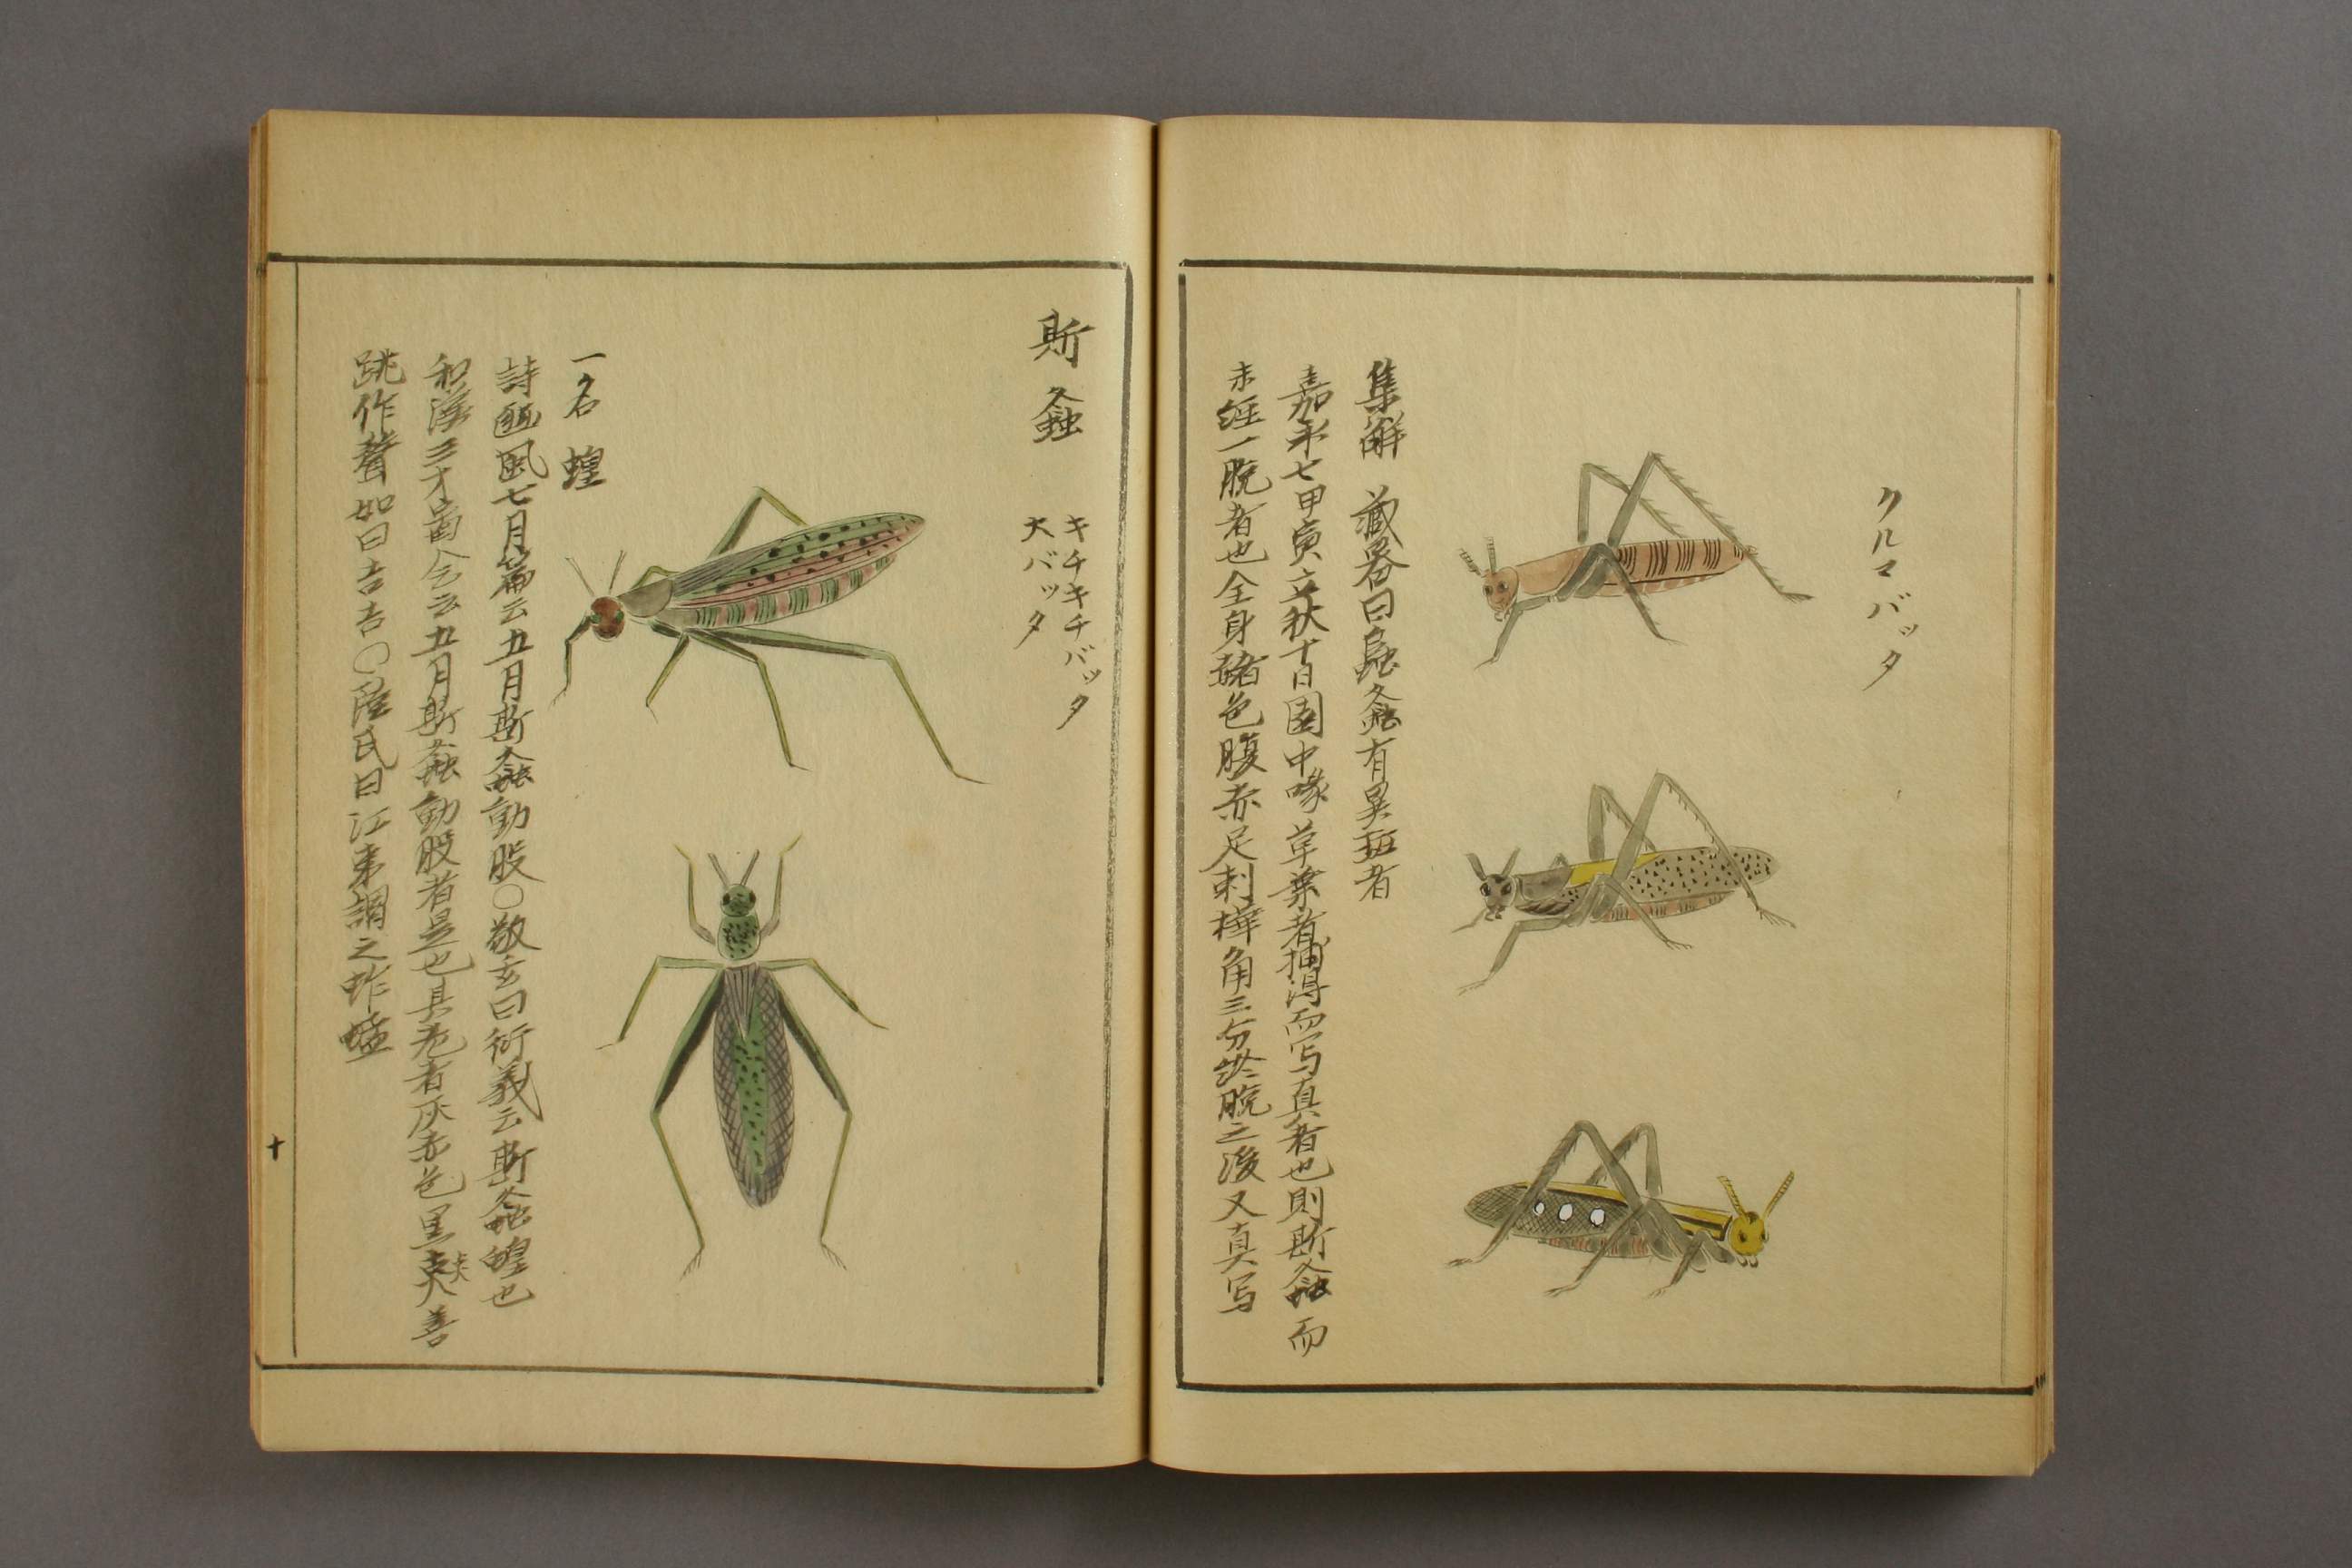 クルマバッタ
集解 蔵器曰𧒂螽有異斑者
嘉永七甲寅立秋十日園中喙草葉者捕得而写真者也則斯螽而
未経一脱者也全身赭色腹赤足刺樺角三分 脱之後又真写
斯螽
キチキチバッタ
大バッタ
一名 蝗
詩豳風七月篇云五月斯螽動股〇敬玄曰衍義云斯螽蝗也
和漢三才啚会云五月斯螽動股者是也其老者灰赤色黒 善
跳作聲如曰吉吉〇陸氏曰江東謂之蚱蜢
十